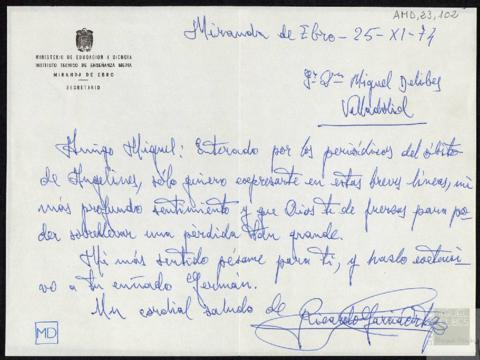 AMD, 33, 102
Miranda de Ebro - 25-XI-74
MINISTERIO DE EDUCACION Y CIENCIA
INSTITUTO TECNICO DE ENSEÑANZA MEDIA
MIRANDA DE EBRO
SECRETARIO
Sr. Dn Miguel Delibes
Valladolid
Amigo Miguel: Enterado por los periódicos del óbito
de Angelines, sólo quiero expresarte en estas breves líneas, mi
más profundo sentimiento y que Dios te de fuerzas para po
der sobrellevar una perdida tan grande.
Mi más sentido pésame para ti, y hazlo extensi
vo a tu cuñado German.
Un cordial saludo de
Ricardo García
MD